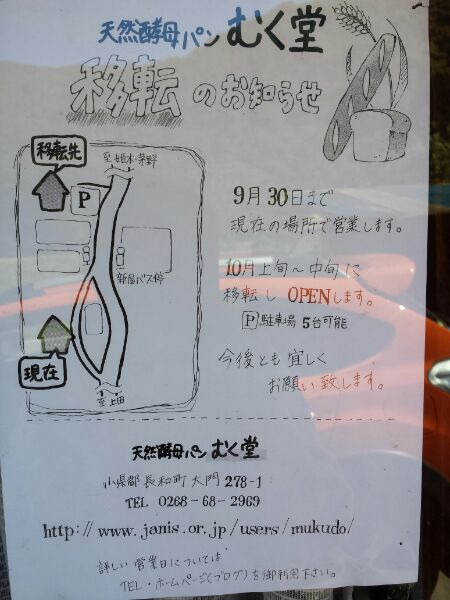 天然酵母パン むく堂
移転のお知らせ
移転先
至 姫木・茅野
P
9月30日まで
現在の場所で営業します。
新屋バス停
10月上旬～中旬に
移転し OPENします。
P 駐車場 5台可能
現在
至上田
今後とも宜しく
お願い致します。
天然酵母パン むく堂
小県郡長和町大門 278-1
TEL 0268-68-2969
http://www.janis.or.jp/users/mukudo/
詳しい営業日については
TEL・ホームページ(ブログ)を御利用下さい。